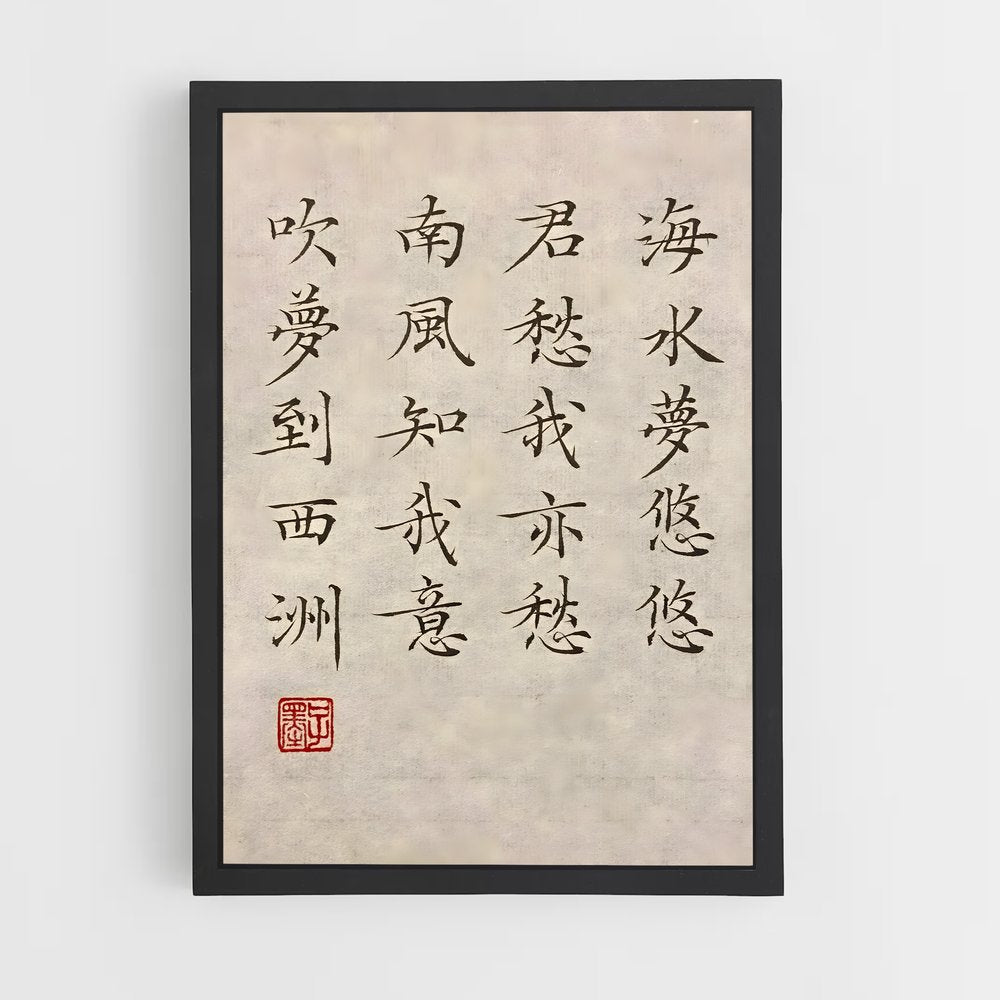 海水夢悠悠
君愁我亦愁
南風知我意
吹夢到西洲
子墨